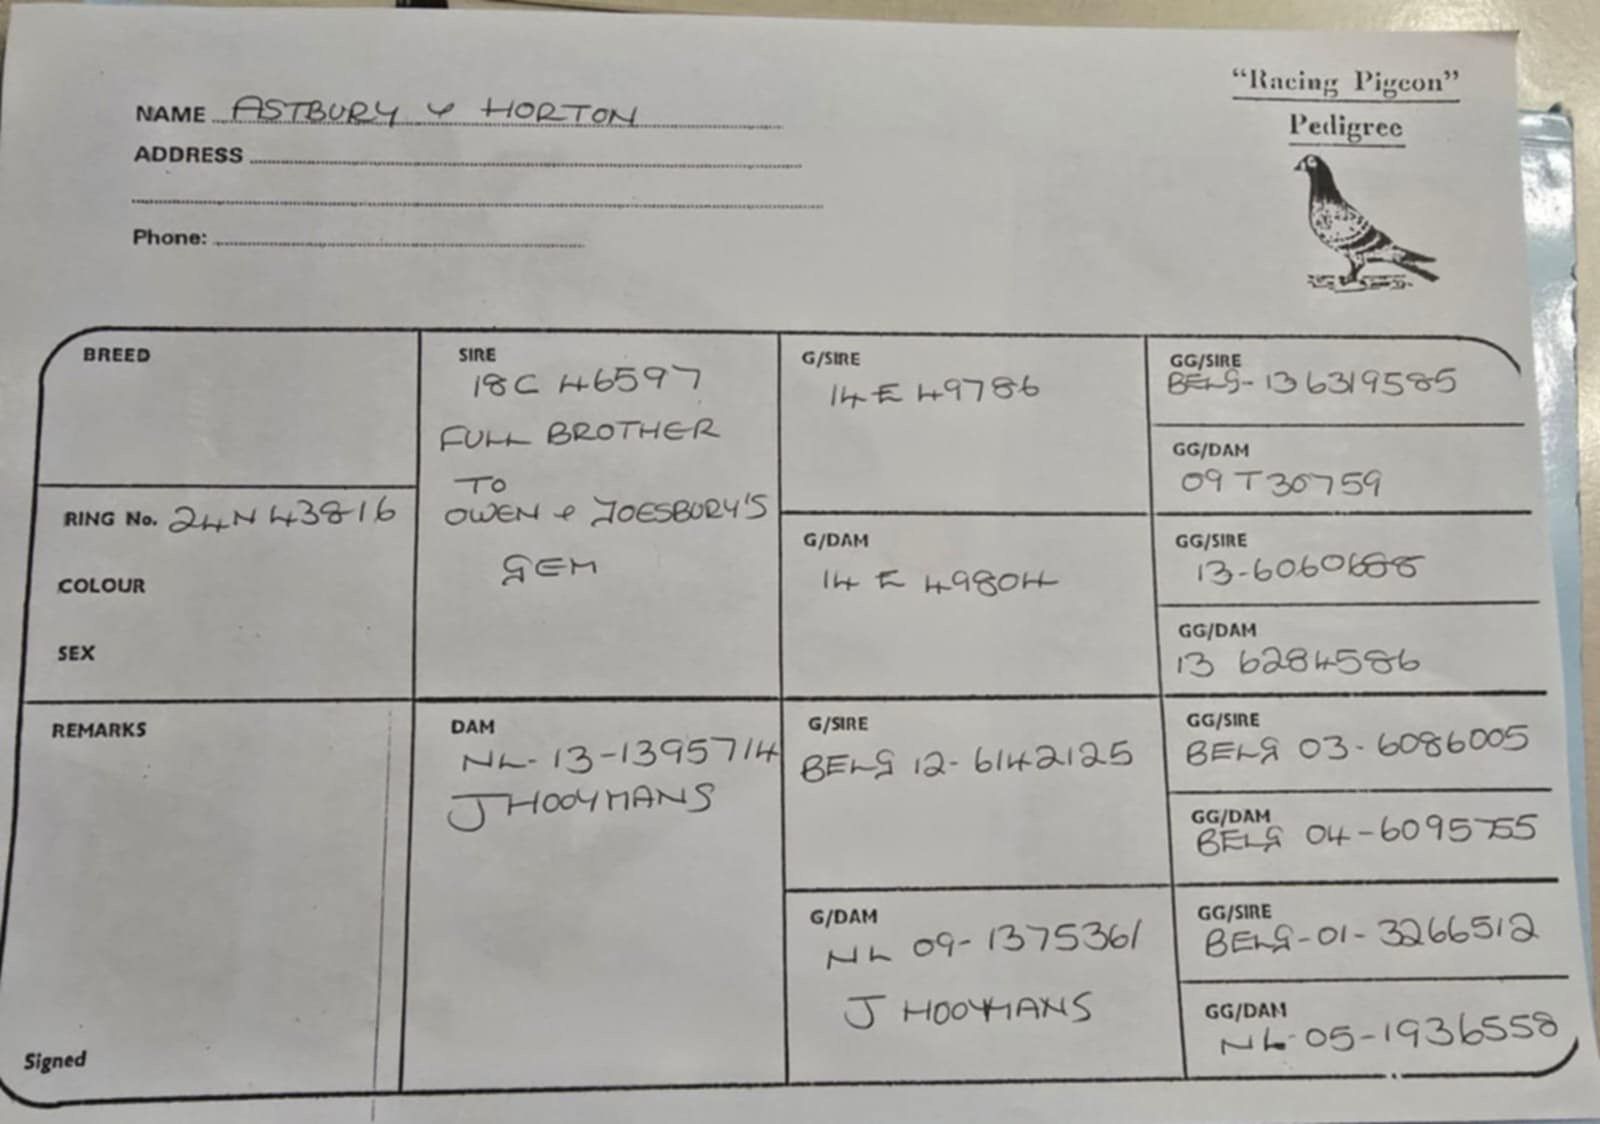 "Racing Pigeon"
Pedigree
NAME ASTBURY & HORTON
ADDRESS
Phone:
BREED
RING No. 24N43816
COLOUR
SEX
REMARKS
Signed
SIRE
18C 46597
FULL BROTHER
TO
OWEN & JOESBURY'S
GEM
DAM
NL-13-1395714
J HOOYMANS
G/SIRE
14 E 49786
G/DAM
14 E 49804
G/SIRE
BELG 12-6142125
G/DAM
NL 09-1375361
J HOOYMANS
GG/SIRE
BELG-136319585
GG/DAM
09 T 30759
GG/SIRE
13-6060688
GG/DAM
13 6284586
GG/SIRE
BELG 03-6086005
GG/DAM
BELG 04-6095755
GG/SIRE
BELG-01-3266512
GG/DAM
NL-05-1936558